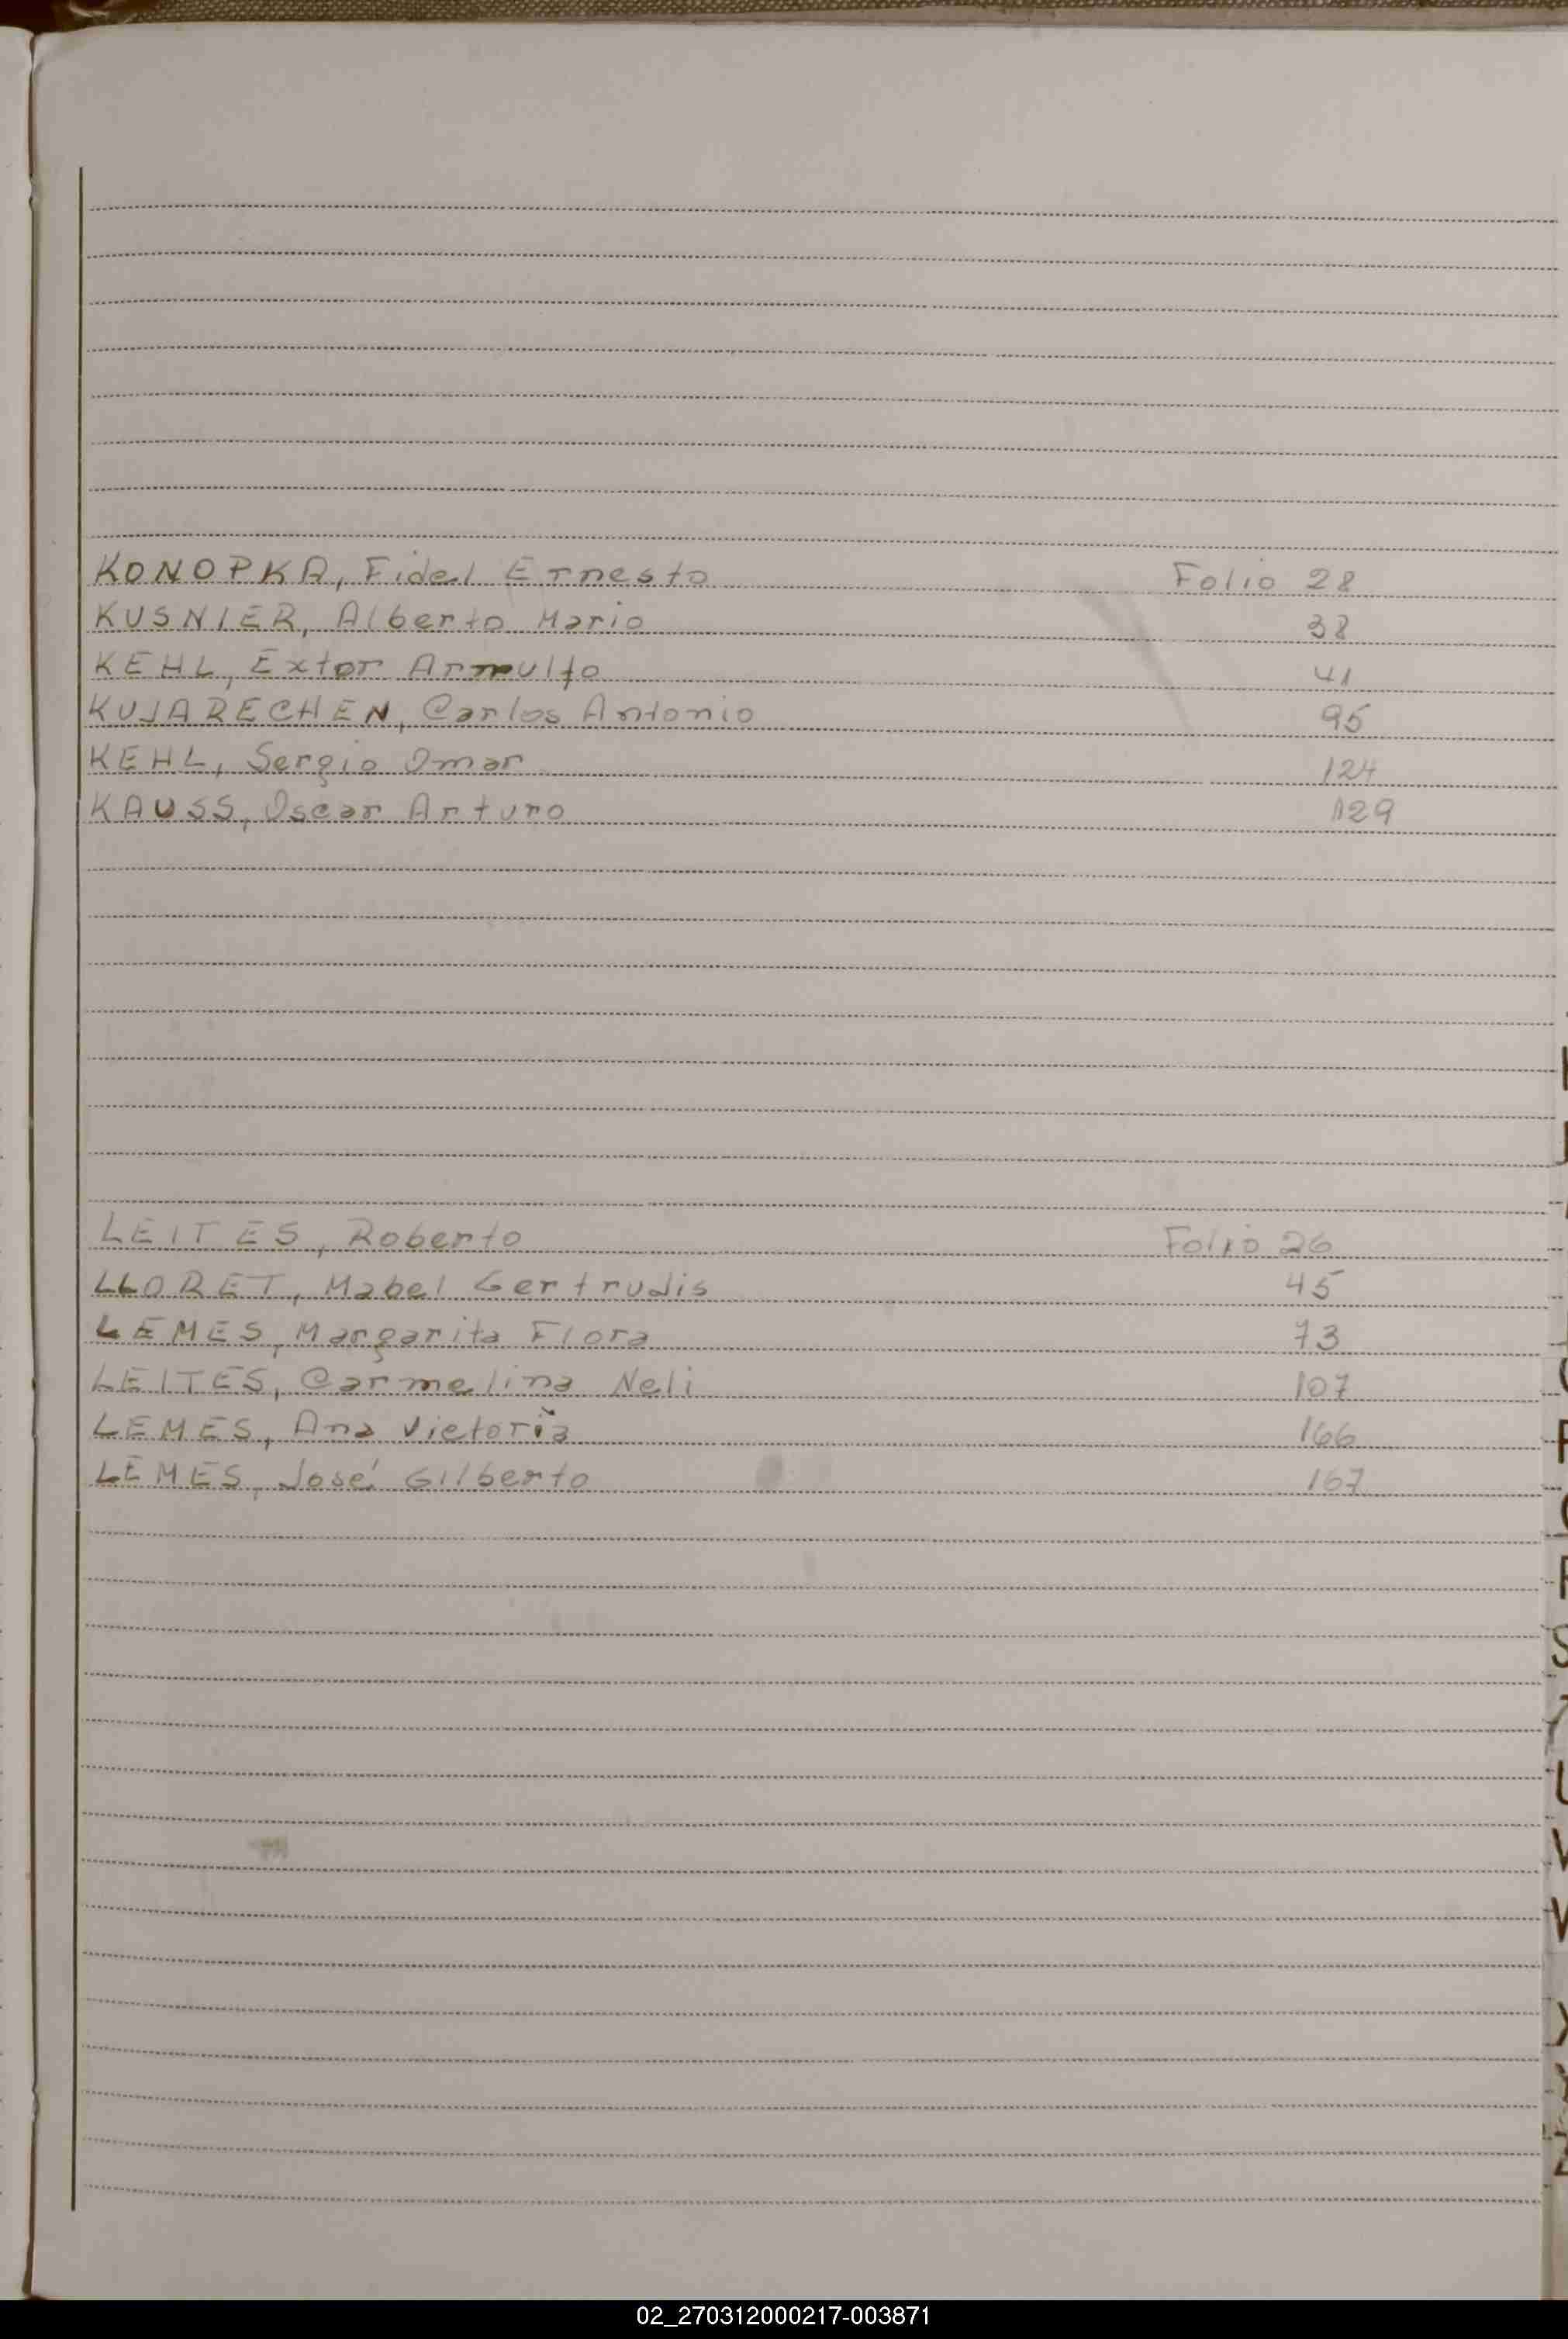 KONOPKA, Fidel Ernesto Folio 28
KUSNIER, Alberto Mario 38
KEHL, Extor Arnulfo 41
KUJARECHEN, Carlos Antonio 95
KEHL, Sergio Omar 124
KAUSS, Oscar Arturo 129
LEITES, Roberto Folio 26
LLORET, Mabel Gertrudis 45
LEMES, Margarita Flora 73
LEITES, Carmelina Neli 107
LEMES, Ana Victoria 166
LEMES, José Gilberto 167
02_270312000217-003871